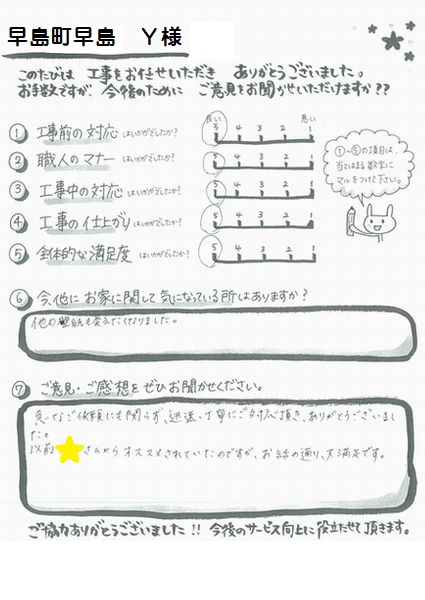 早島町早島　Y様
このたびは 工事をお任せいただき ありがとうございました。
お手数ですが、今後のために ご意見をお聞かせいただけますか??
① 工事前の対応 はいかがでしたか?
良い 悪い
5 4 3 2 1
② 職人のマナー はいかがでしたか?
5 4 3 2 1
③ 工事中の対応 はいかがでしたか?
5 4 3 2 1
④ 工事の仕上がり はいかがでしたか?
5 4 3 2 1
⑤ 全体的な満足度 はいかがでしたか?
5 4 3 2 1
①〜⑤の項目は
当てはまる数字に
マルをつけて下さい。
⑥ 今、他に お家に関して 気になっている所はありますか?
他の壁紙も変えたくなりました。
⑦ ご意見・ご感想を ぜひお聞かせください。
急なご依頼にも関らず、迅速、丁寧にご対応頂き、ありがとうございまし
た。
以前 さんからオススメされていたのですが、お話の通り、大満足です。
ご協力ありがとうございました!! 今後のサービス向上に役立たせて頂きます。